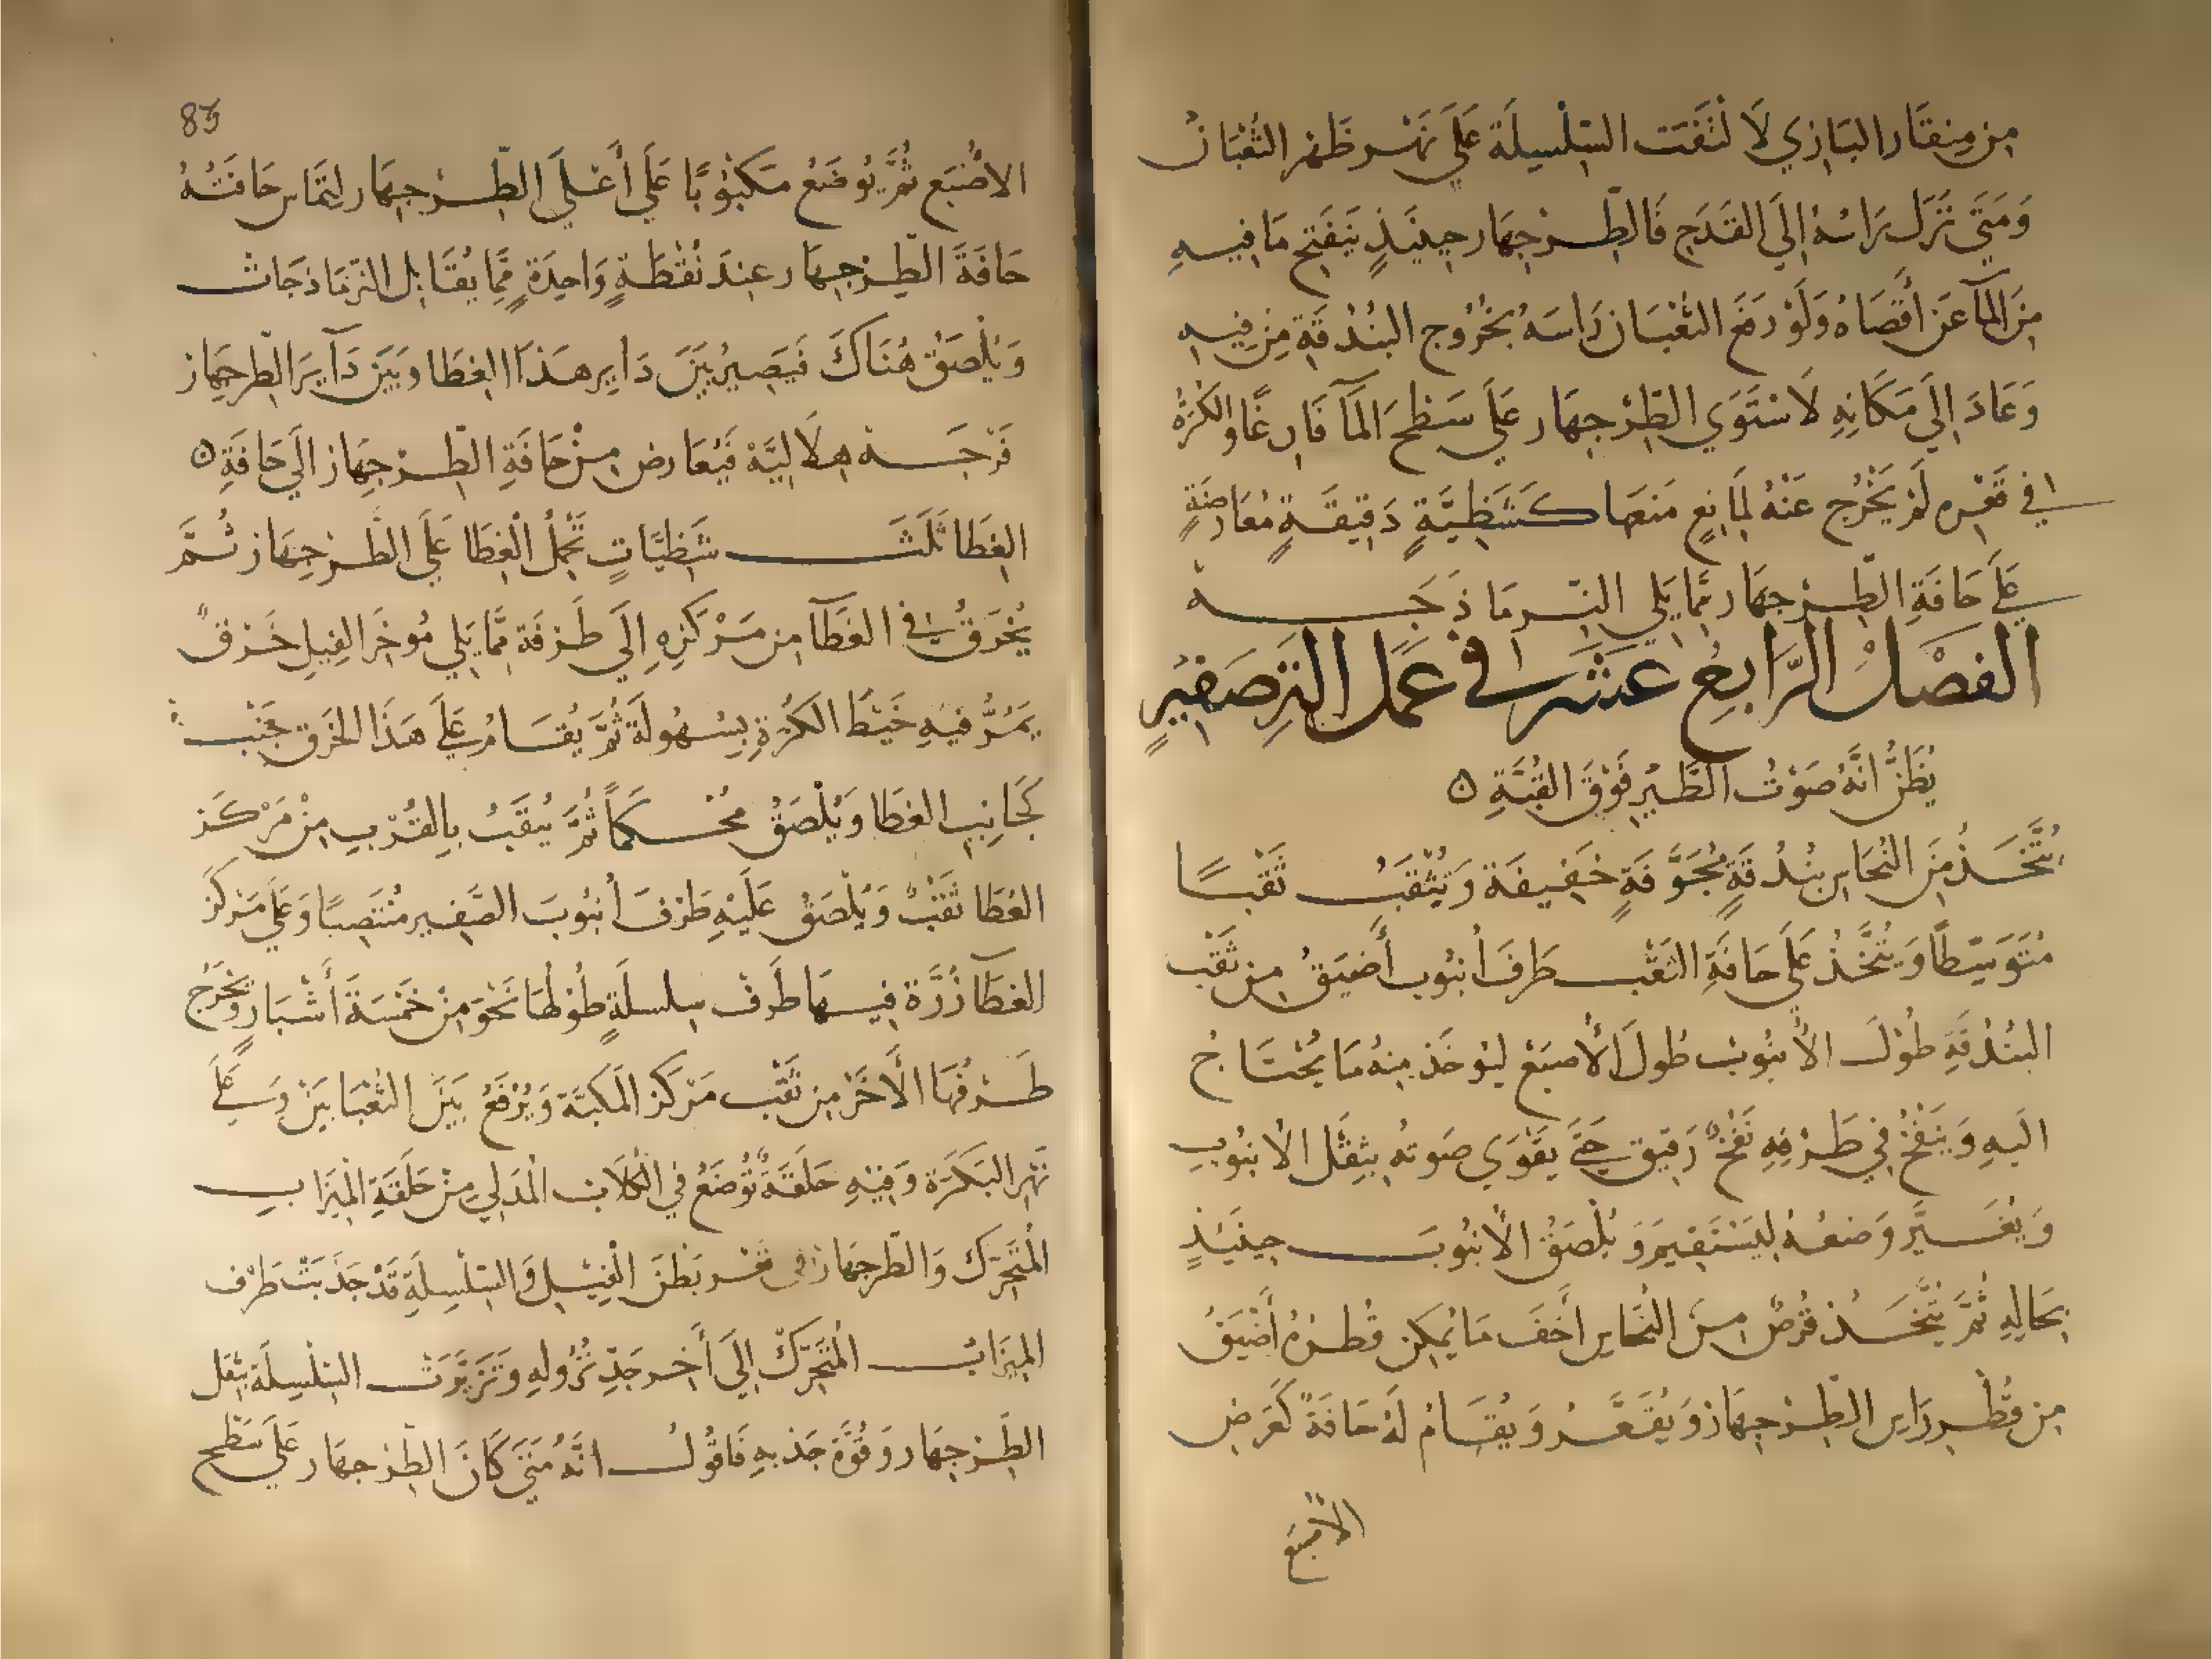 من مِنقَار البَازي لَا لتَفَت السِّلْسِلَة عَلَي نَهْر ظَهر الثُّعْبَان
وَمَتَي نَزَل بَرَاسهُ اِلَي القَدَح فَالطِّرْجِهَار حِينَيذٍ يَنفَتح مَا فِيهِ
مِنَ المآ عَن أَقصَاهُ وَلَوْ رَفَعَ الثُّعْبَان رَاسَهُ بخُرُوج البُنْدُقَةِ مِن فِيهِ
وَعَادَ اِلَي مَكَانِهِ لَاسْتَوَي الطِّرْجهَار عَلَي سَطْحَ المَآ فَارغًا وَالكُرَةُ
في قَعْرِه لَمْ يَخْرُج عَنْهُ لمَانِعٍ مَنعهَا كَشَظِيَّةٍ دَقِيقَةٍ مُعَارضَةٍ
عَلَي حَافَةِ الطِّرْجِهَار مِمَّا يَلي النَّرمَاذَجَة
الفَصْلُ الرَّابعُ عشَر في عَمَل الزِّصَفِيرٍ
يُظَنُّ انَّهُ صَوْتُ الطَّيْرِ فَوْقَ القُبَّةِ ٥
يُتَّخَذُ مِنَ النُّحَاس بُنْدُقَةٍ مُجَوَّفَةٍ خَفِيفَة وَيُثْقَبُ ثَقْبًا
مُتَوَسِّطًا وَيُتَّخَذُ عَلَي حَافَةِ الثقْب طَرَفَ أُنبُوب أَضيَقُ من ثَقْب
البُنْدُقَةِ طُوْلَ الأنبُوب طُولَ الأُصبَعْ ليُوخَذ مِنهُ مَا يُحْتَاجُ
اليهِ وَيَنفُخُ فِي طَرفِهِ نَفْخٌ رَقيق حَتَّي يَقوَي صَوتهُ بِثِقَل الانبُوبِ
وَيُغَيَّر وَضعُهُ لِيَسْتَقِيمَ وَيُلْصَقُ الأنبُوبَ حِينَيذٍ
بِحَالِهِ ثُمَّ يُتَّخَذ قُرصٌ مِنَ النُّحَاس أَخَفَ مَا يُمكِن قُطرهُ أَضْيَقُ
مِن قُطْر دَاير الطِّرْجِهَار وَيُقَعَّرُ وَيُقَامُ لَهُ حَافَةً كَعَرَضِ
الأصبَع
83
الأُصْبَع ثُمَّ يُوضَعُ مَكبُوْبًا عَلَي أَعْلَي الطِّرْجِهَار لتمَاس حَافَتُهُ
حَافَةَ الطِّرْجِهَار عِندَ نُقْطَةٍ وَاحِدَةٍ مِمَّا يُقَابِل النَّرمَاذجَات
وَيُلْصَقُ هُنَاكَ فَيَصِيرُ بَيْنَ دَاير هَذَا الغِطَا وبَيْن دَآيرَ الطِّرجِهَار
فَرْجَة هِلَاليَّة فَيُعَارض مِنْ حَافَةِ الطِّرْجِهَار الَي حَافَةِ ٥
الغِطَا ثَلَثَ شَظِيَّاتٍ تَحْمِلُ الْغِطَا عَلَي الطِّرْجِهَار ثُمَّ
يُخْرَقُ في الغطَآ مِن مَرْكَزِهِ اِلَي طَرْفَهُ مِمَّا يَلي مُوخرَ الفِيلِ خَرْقٌ
يَمُرُّ فيهِ خَيْطَ الكُرَةِ بسُهُولَة ثُمَّ يُقَامُ عَلَي هَذَا الخَرق جَنْبَتٌ
كَجَانِبِ الغطَا وَيُلْصَقُ مُحْكَماً ثُمَّ يُثقَبُ بِالقُرْبِ مِنْ مَرْكَز
الغطَا ثَقْبٌ وَيُلْصَقُ عَلَيْهِ طَرْفَ أُنبُوبَ الصَّفِير مُنْتَصِبًا وَعَلَي مَرْكَز
الغِطَآ زُرَّة فِيهَا طَرَفْ سِلسلَةٍ طُولهَا نَحْوَ مِنْ خَمْسَةَ أَشْبَارٍ وَيَخْرُج
طَرفُهَا الأخَرْ مِن ثَقْب مَرْكَز المَكَبَّة وَيُرْفَعُ بَيْنَ الثُّعْبَابَيْنِ وَعَلَي
نَهْر البَكَرَة وَفِيْهِ حَلَقَةٌ تُوْضَعُ في الكلَاب المَدَلِي مِنْ حَلَقَةِ المِيزَابِ
المُتَحَرِّك وَالطِّرجِهَار في قَعْر بَطْنَ الفِيْل وَالسِّلْسِلَةِ قَدْ جَذَبَتْ طَرْف
المِيزَابُ الْمُتَحَرِّكْ اِلَي أَخِر حَدِّ نُزُولهِ وَتَزَبَّرَتْ السِّلْسِلَة بِثِقَل
الطِّرْجِهَار وَقُوَّة جَذبهِ فَاقُولُ انَّهُ مَتَي كَانَ الطِّرْجهَار عَلَي سَطْح